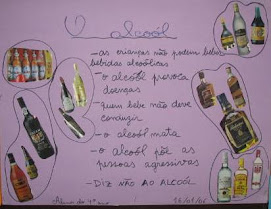 O alcoól
- as crianças não podem beber
bebidas alcoólicas
- o alcoól provoca
doenças
- quem bebe não deve
conduzir
- o alcoól mata
- o alcoól põe as
pessoas agressivas
- DIZ NÃO AO ALCOÓL
Alunos do 4º ano